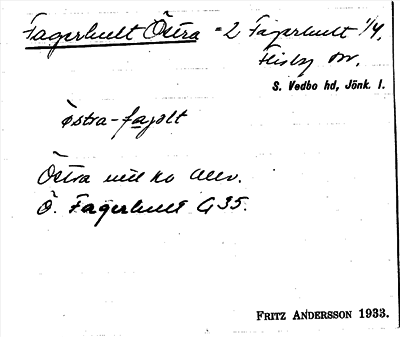 Fagerhult Östra = 2 Fagerhult 1/4.
Flisby sn.
S. Vedbo hd, Jönk. l.
östra-fagølt
Östra
Ö. Fagerhult G 35.
FRITZ ANDERSSON 1933.